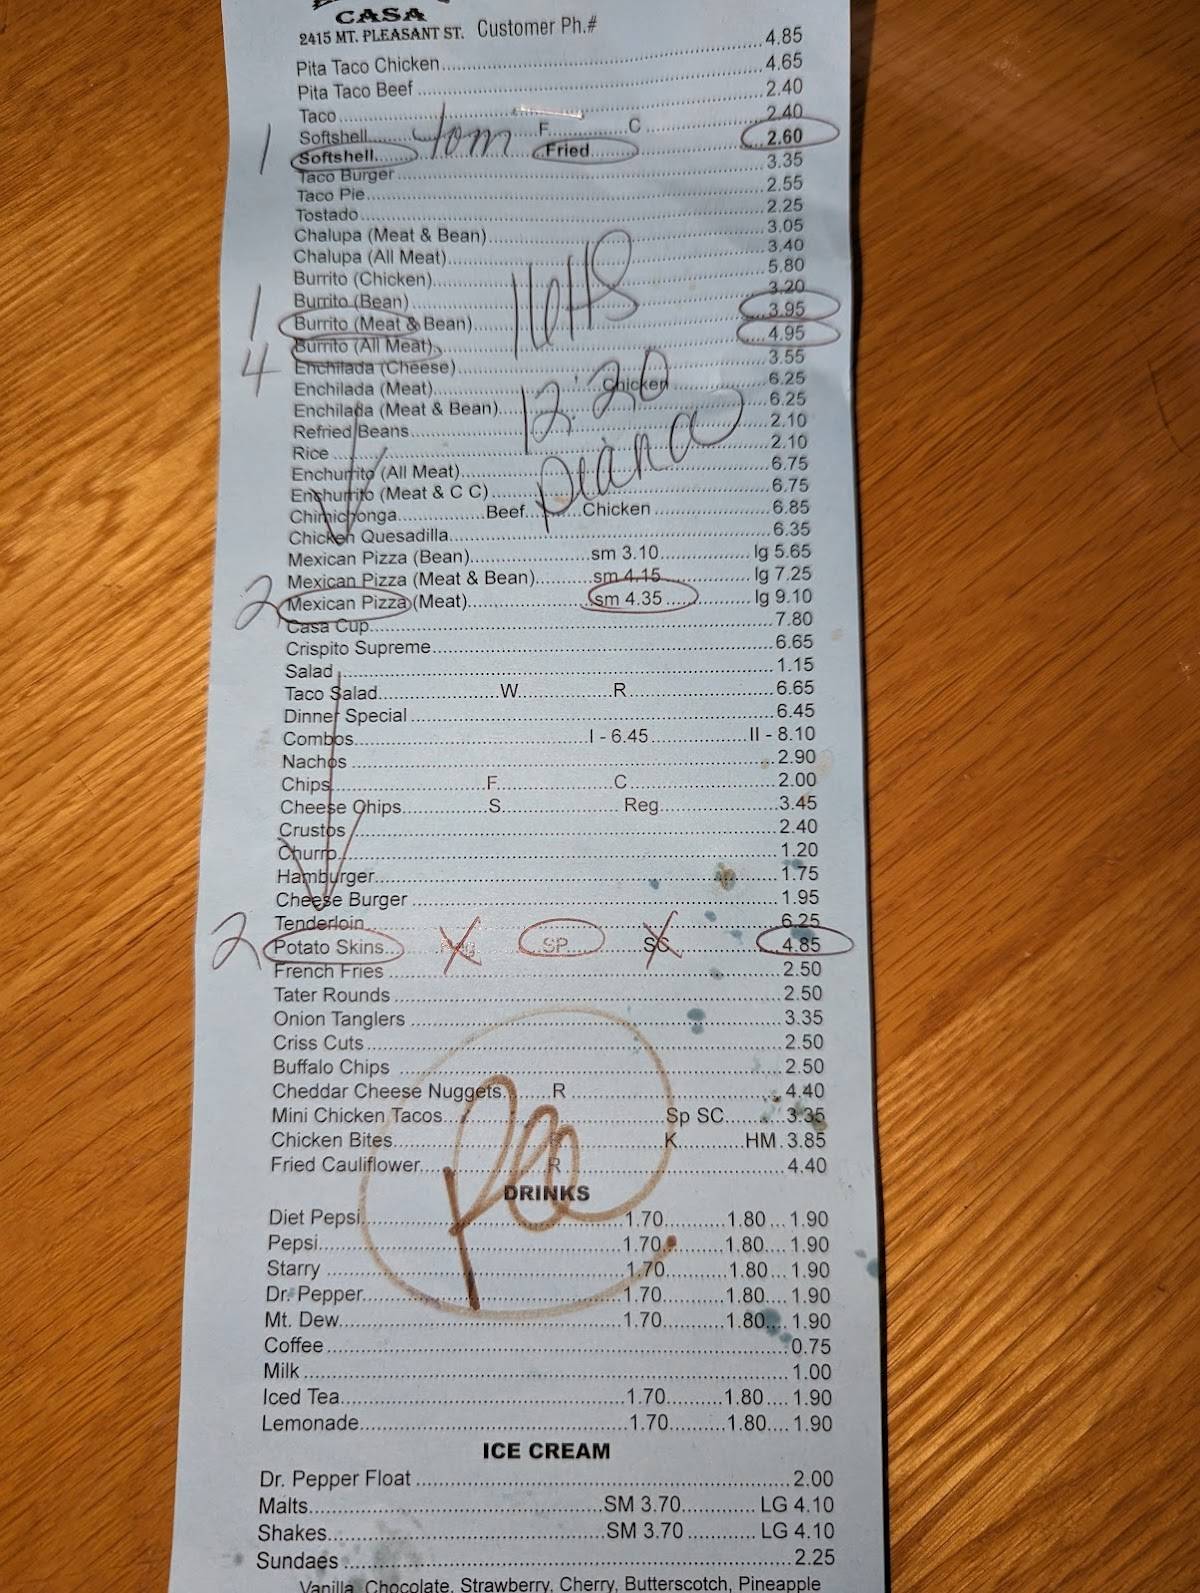 CASA
2415 MT. PLEASANT ST. Customer Ph.#
Pita Taco Chicken 4.85
Pita Taco Beef 4.65
Taco 2.40
Softshell F C 2.40
1 Softshell Tom Fried 2.60
Taco Burger 3.35
Taco Pie 2.55
Tostado 2.25
Chalupa (Meat & Bean) 3.05
Chalupa (All Meat) 3.40
Burrito (Chicken) 5.80
Burrito (Bean) 3.20
1 Burrito (Meat & Bean) 3.95
4 Burrito (All Meat) 4.95
Enchilada (Cheese) 3.55
Enchilada (Meat) Chicken 6.25
12:20
Enchilada (Meat & Bean) 6.25
Refried Beans 2.10
Diana
Rice 2.10
Enchurito (All Meat) 6.75
Enchurito (Meat & C C) 6.75
Chimichonga Beef Chicken 6.85
Chicken Quesadilla 6.35
Mexican Pizza (Bean) sm 3.10 lg 5.65
Mexican Pizza (Meat & Bean) sm 4.15 lg 7.25
2 Mexican Pizza (Meat) sm 4.35 lg 9.10
Casa Cup 7.80
Crispito Supreme 6.65
Salad 1.15
Taco Salad W R 6.65
Dinner Special 6.45
Combos I - 6.45 II - 8.10
Nachos 2.90
Chips F C 2.00
Cheese Chips S Reg 3.45
Crustos 2.40
Churro 1.20
Hamburger 1.75
Cheese Burger 1.95
Tenderloin 6.25
2 Potato Skins SP SC 4.85
French Fries 2.50
Tater Rounds 2.50
Onion Tanglers 3.35
Criss Cuts 2.50
Buffalo Chips 2.50
Cheddar Cheese Nuggets R 4.40
Mini Chicken Tacos Sp SC 3.35
Chicken Bites K HM 3.85
Fried Cauliflower R 4.40
DRINKS
Diet Pepsi 1.70 1.80 1.90
Pepsi 1.70 1.80 1.90
Starry 1.70 1.80 1.90
Dr. Pepper 1.70 1.80 1.90
Mt. Dew 1.70 1.80 1.90
Coffee 0.75
Milk 1.00
Iced Tea 1.70 1.80 1.90
Lemonade 1.70 1.80 1.90
ICE CREAM
Dr. Pepper Float 2.00
Malts SM 3.70 LG 4.10
Shakes SM 3.70 LG 4.10
Sundaes 2.25
Vanilla, Chocolate, Strawberry, Cherry, Butterscotch, Pineapple